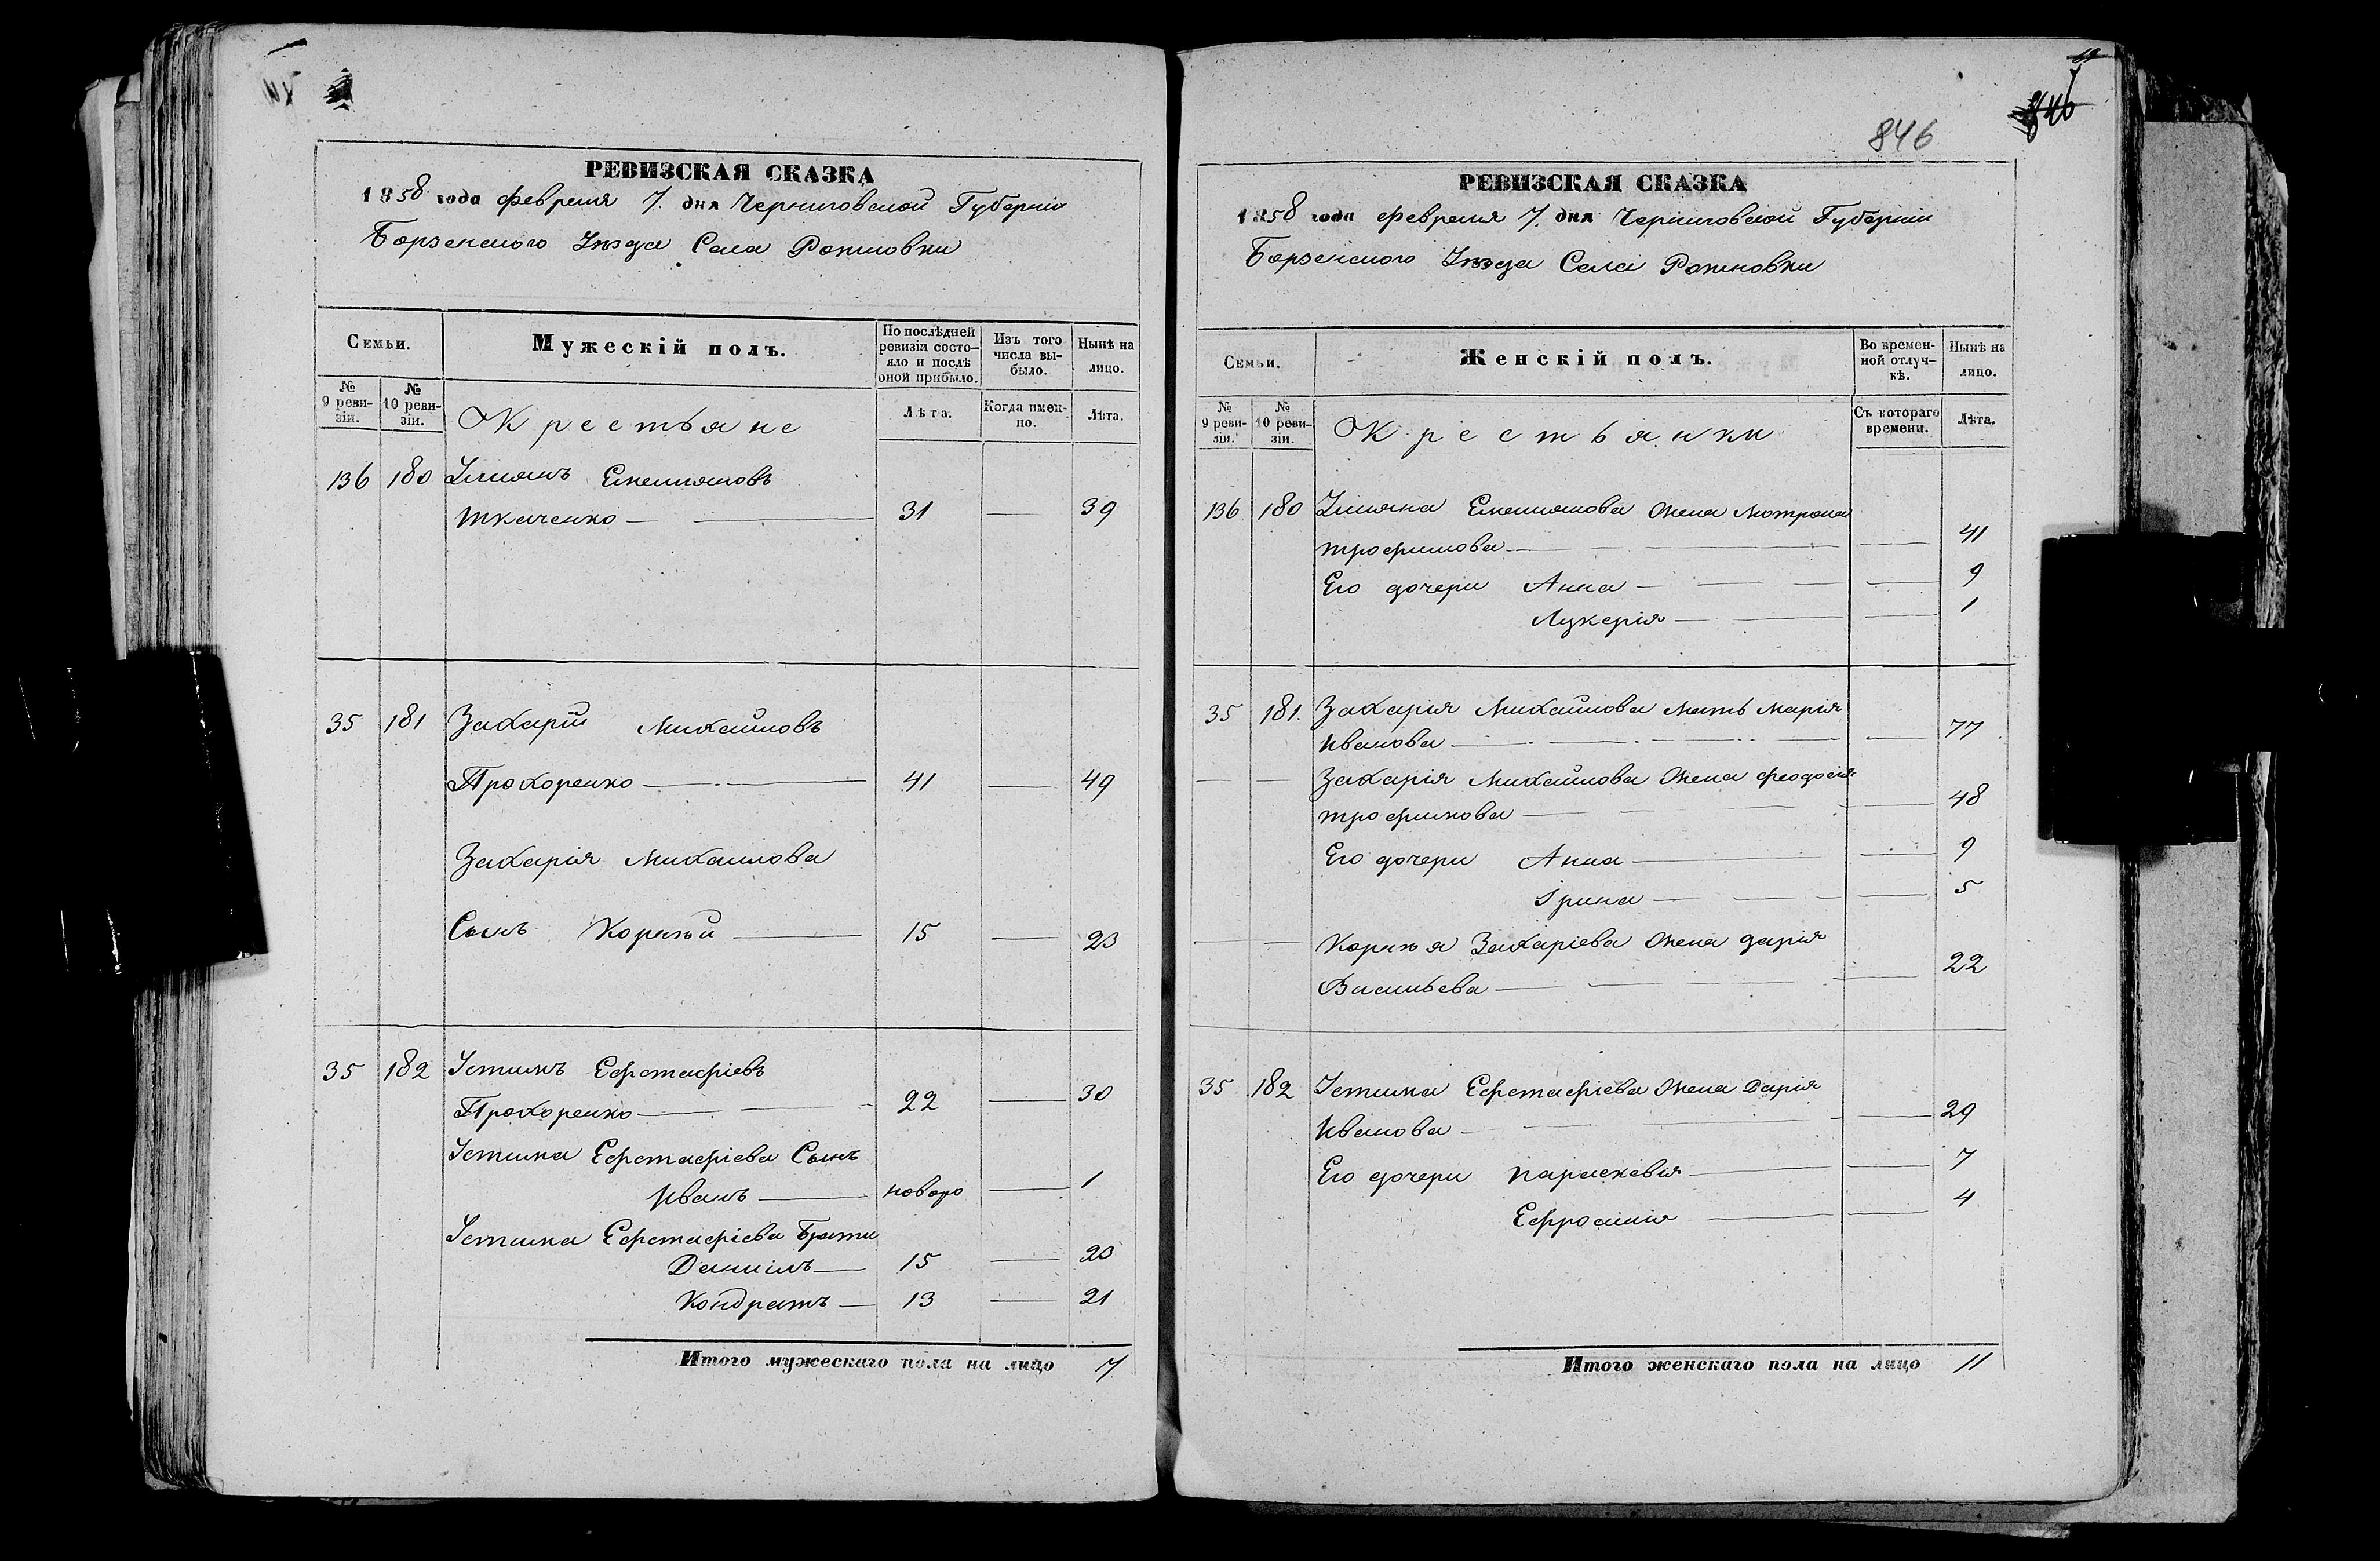 РЕВИЗСКАЯ СКАЗКА
1858 года февраля 7. дня Черниговской Губерніи
Борзенского Уѣзда Села Рожновки
Семьи.
Мужескій полъ.
По послѣдней ревизіи состояло и послѣ оной прибыло.
Изъ того числа выбыло.
Нынѣ на лицо.
№ 9 ревизіи.
№ 10 ревизіи.
Крестьяне
Лѣта.
Когда именно.
Лѣта.
136 180 Улианъ Емелиановъ
Ткаченко — 31 — 39
35 181 Захарій Михайловъ
Прохоренко — 41 — 49
Захарія Михаилова
Сынъ Корнѣй — 15 — 23
35 182 Устинъ Ефстафіевъ
Прохоренко — 22 — 30
Устина Ефстафіева Сынъ
Иванъ — новоро — 1
Устина Ефстафіева Брати
Даниілъ — 15 — 23
Кондратъ — 13 — 21
Итого мужескаго пола на лицо 7
846
846
РЕВИЗСКАЯ СКАЗКА
1858 года февраля 7. дня Черниговской Губерніи
Борзенского Уѣзда Села Рожновки
Семьи.
Женскій полъ.
Во временной отлучкѣ.
Нынѣ на лицо.
№ 9 ревизіи.
№ 10 ревизіи.
Крестьянки
Съ котораго времени.
Лѣта.
136 180 Улиана Емелианова жена Мотрона
трофимова — — 41
Его дочери Анна — — 9
Лукерія — — 1
35 181. Захарія Михайлова мать марія
Иванова — — 77
— — Захарія Михайлова жена феодосія
трофимова — — 48
Его дочери Анна — — 9
Ірина — — 5
— — Корнѣя Захаріева жена дарія
Васильева — — 22
35 182 Устина Ефстафіева жена Дарія
Иванова — — 29
Его дочери параскевія — — 7
Ефросинія — — 4
Итого женскаго пола на лицо 11